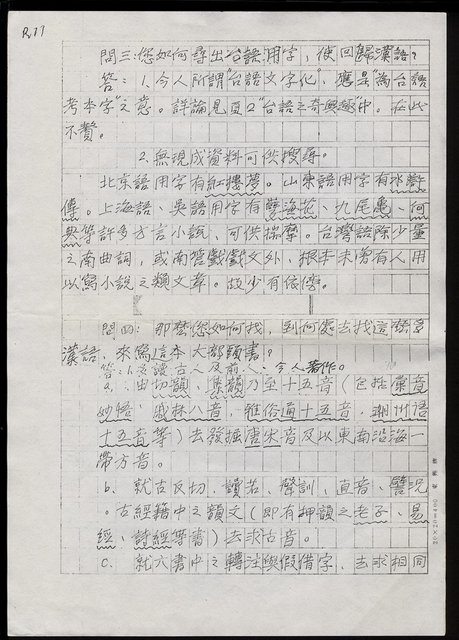 P.11
問三：您如何尋出台語用字，使回歸漢語？
答：1.今人所謂"台語文字化"，應是"為台語
考本字"之意。詳論見頁2"台語之奇與趣"中。在此
不贅。
2.無現成資料可供搜尋。
北京語用字有紅樓夢。山東語用字有水滸
傳。上海語、吳語用字有孽海花、九尾龜、何
典等許多方言小說，可供揣摩。台灣語除少量
之南曲詞，或南管戲戲文外，根本未曾有人用
以寫小說之類文章。故少有依傍。
問四：那麼您如何找，到何處去找這
漢語，來寫這本大部頭書？
答：1.後讀古人及前人、今人著作。
a. 由切韻、集韻乃至十五音（包括彙音
妙悟、戚林八音，雅俗通十五音，潮州語
十五音等）去發掘唐宋音及以東南沿海一
帶方音。
b. 就古反切、讀若、聲訓、直音、譬況
。古經籍中之韻文（即有押韻之老子、易
經、詩經等書）去求古音。
c. 就六書中之轉注與假借字，去求相同